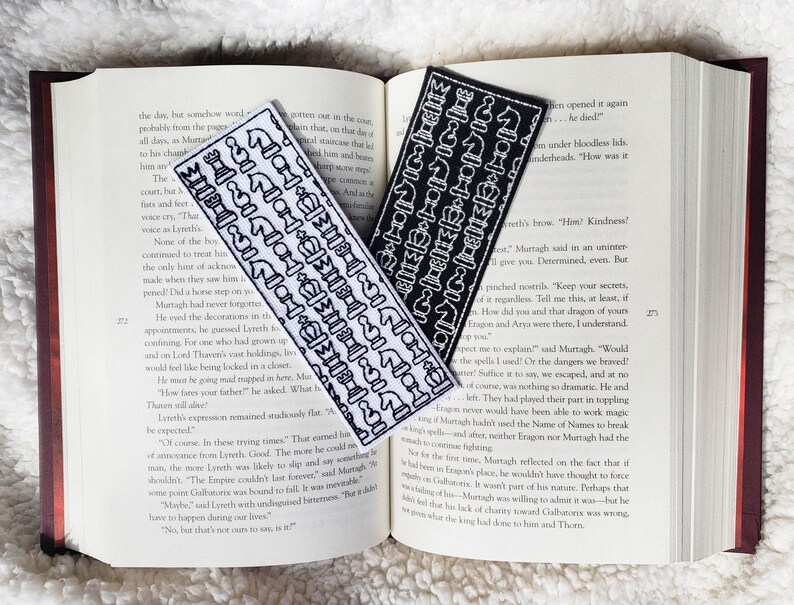 the day, but somehow word gotten out in the court,
probably from the pages explain that, on that day of
all days, as Murtagh spiral staircase that led
to his chamb ished him and beaten
him an sharp stone steps?
The type common at
court, but M And as the
fists and feet semi-familiar
voice cry, "That
voice as Lyreth's.
None of the boy
continued to treat him
the only hint of acknow
made when they saw him i
pened? Did a horse step on yo
Murtagh had never forgotten
He eyed the decorations in th
appointments, he guessed Lyreth fo
confining. For one who had grown up
and on Lord Thaven's vast holdings, livi
would feel like being locked in a closet.
He must be going mad trapped in here, Murt
"How fares your father?" he asked. What h
Thaven still alive?
Lyreth's expression remained studiously flat. "A
be expected."
"Of course. In these trying times." That earned him
of annoyance from Lyreth. Good. The more he could ne
man, the more Lyreth was likely to slip and say something
shouldn't. "The Empire couldn't last forever," said Murtagh. "At
some point Galbatorix was bound to fall. It was inevitable."
"Maybe," said Lyreth with undisguised bitterness. "But it didn't
have to happen during our lives."
"No, but that's not ours to say, is it?"
272
then opened it again
. . . he died?"
from under bloodless lids.
underheads. "How was it
Lyreth's brow. "Him? Kindness?
test," Murtagh said in an uninter-
I'll give you. Determined, even. But
pinched nostrils. "Keep your secrets,
of it regardless. Tell me this, at least, if
How did you and that dragon of yours
Eragon and Arya were there, I understand.
stop you."
expect me to explain?" said Murtagh. "Would
ow the spells I used? Or the dangers we braved?
matter! Suffice it to say, we escaped, and at no
, of course, was nothing so dramatic. He and
. . . left. They had played their part in toppling
Eragon never would have been able to work magic
king if Murtagh hadn't used the Name of Names to break
the king's spells—and after, neither Eragon nor Murtagh had the
to continue fighting.
Not for the first time, Murtagh reflected on the fact that if
he had been in Eragon's place, he wouldn't have thought to force
empathy on Galbatorix. It wasn't part of his nature. Perhaps that
was a failing of his—Murtagh was willing to admit it was—but he
didn't feel that his lack of charity toward Galbatorix was wrong,
not given what the king had done to him and Thorn.
273